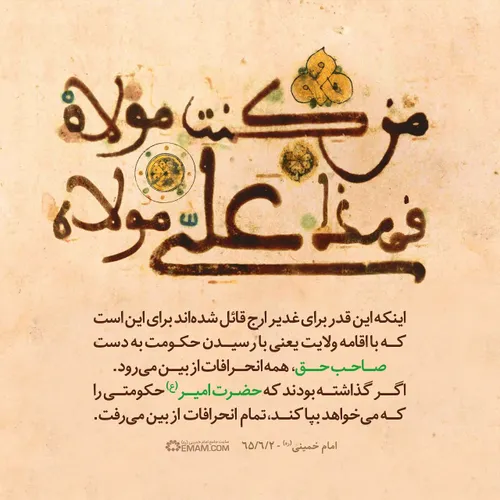 من کنت مولاه
فهذا علیّ مولاه
اینکه این قدر برای غدیر ارج قائل شده‌اند برای این است
که با اقامه ولایت یعنی با رسیدن حکومت به دست
صاحب حق، همه انحرافات از بین می‌رود.
اگر گذاشته بودند که حضرت امیر(ع) حکومتی را
که می‌خواهد بپا کند، تمام انحرافات از بین می‌رفت.
امام خمینی(ره) - ۶۵/۶/۲
EMAM.COM